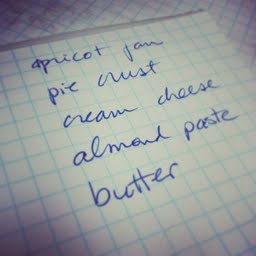 apricot jam
pie crust
cream cheese
almond paste
butter